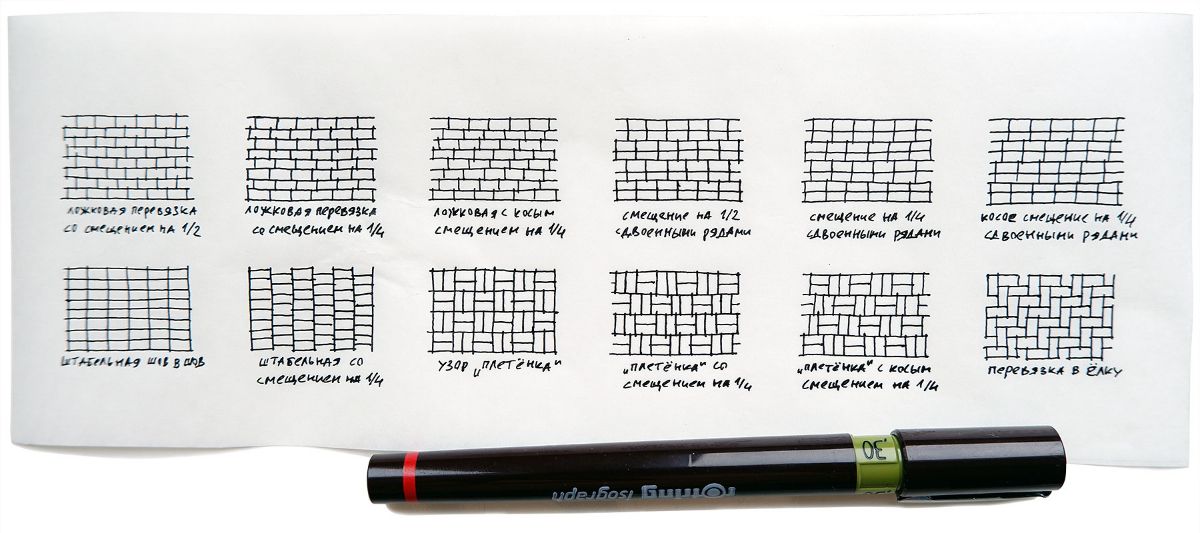 ложковая перевязка
со смещением на 1/2
ложковая перевязка
со смещением на 1/4
ложковая с косым
смещением на 1/4
смещение на 1/2
сдвоенными рядами
смещение на 1/4
сдвоенными рядами
косое смещение на 1/4
сдвоенными рядами
штабельная шов в шов
штабельная со
смещением на 1/4
узор „плетёнка“
„плетёнка“ со
смещением на 1/4
„плетёнка“ с косым
смещением на 1/4
перевязка в ёлку
.30
rotring isograph